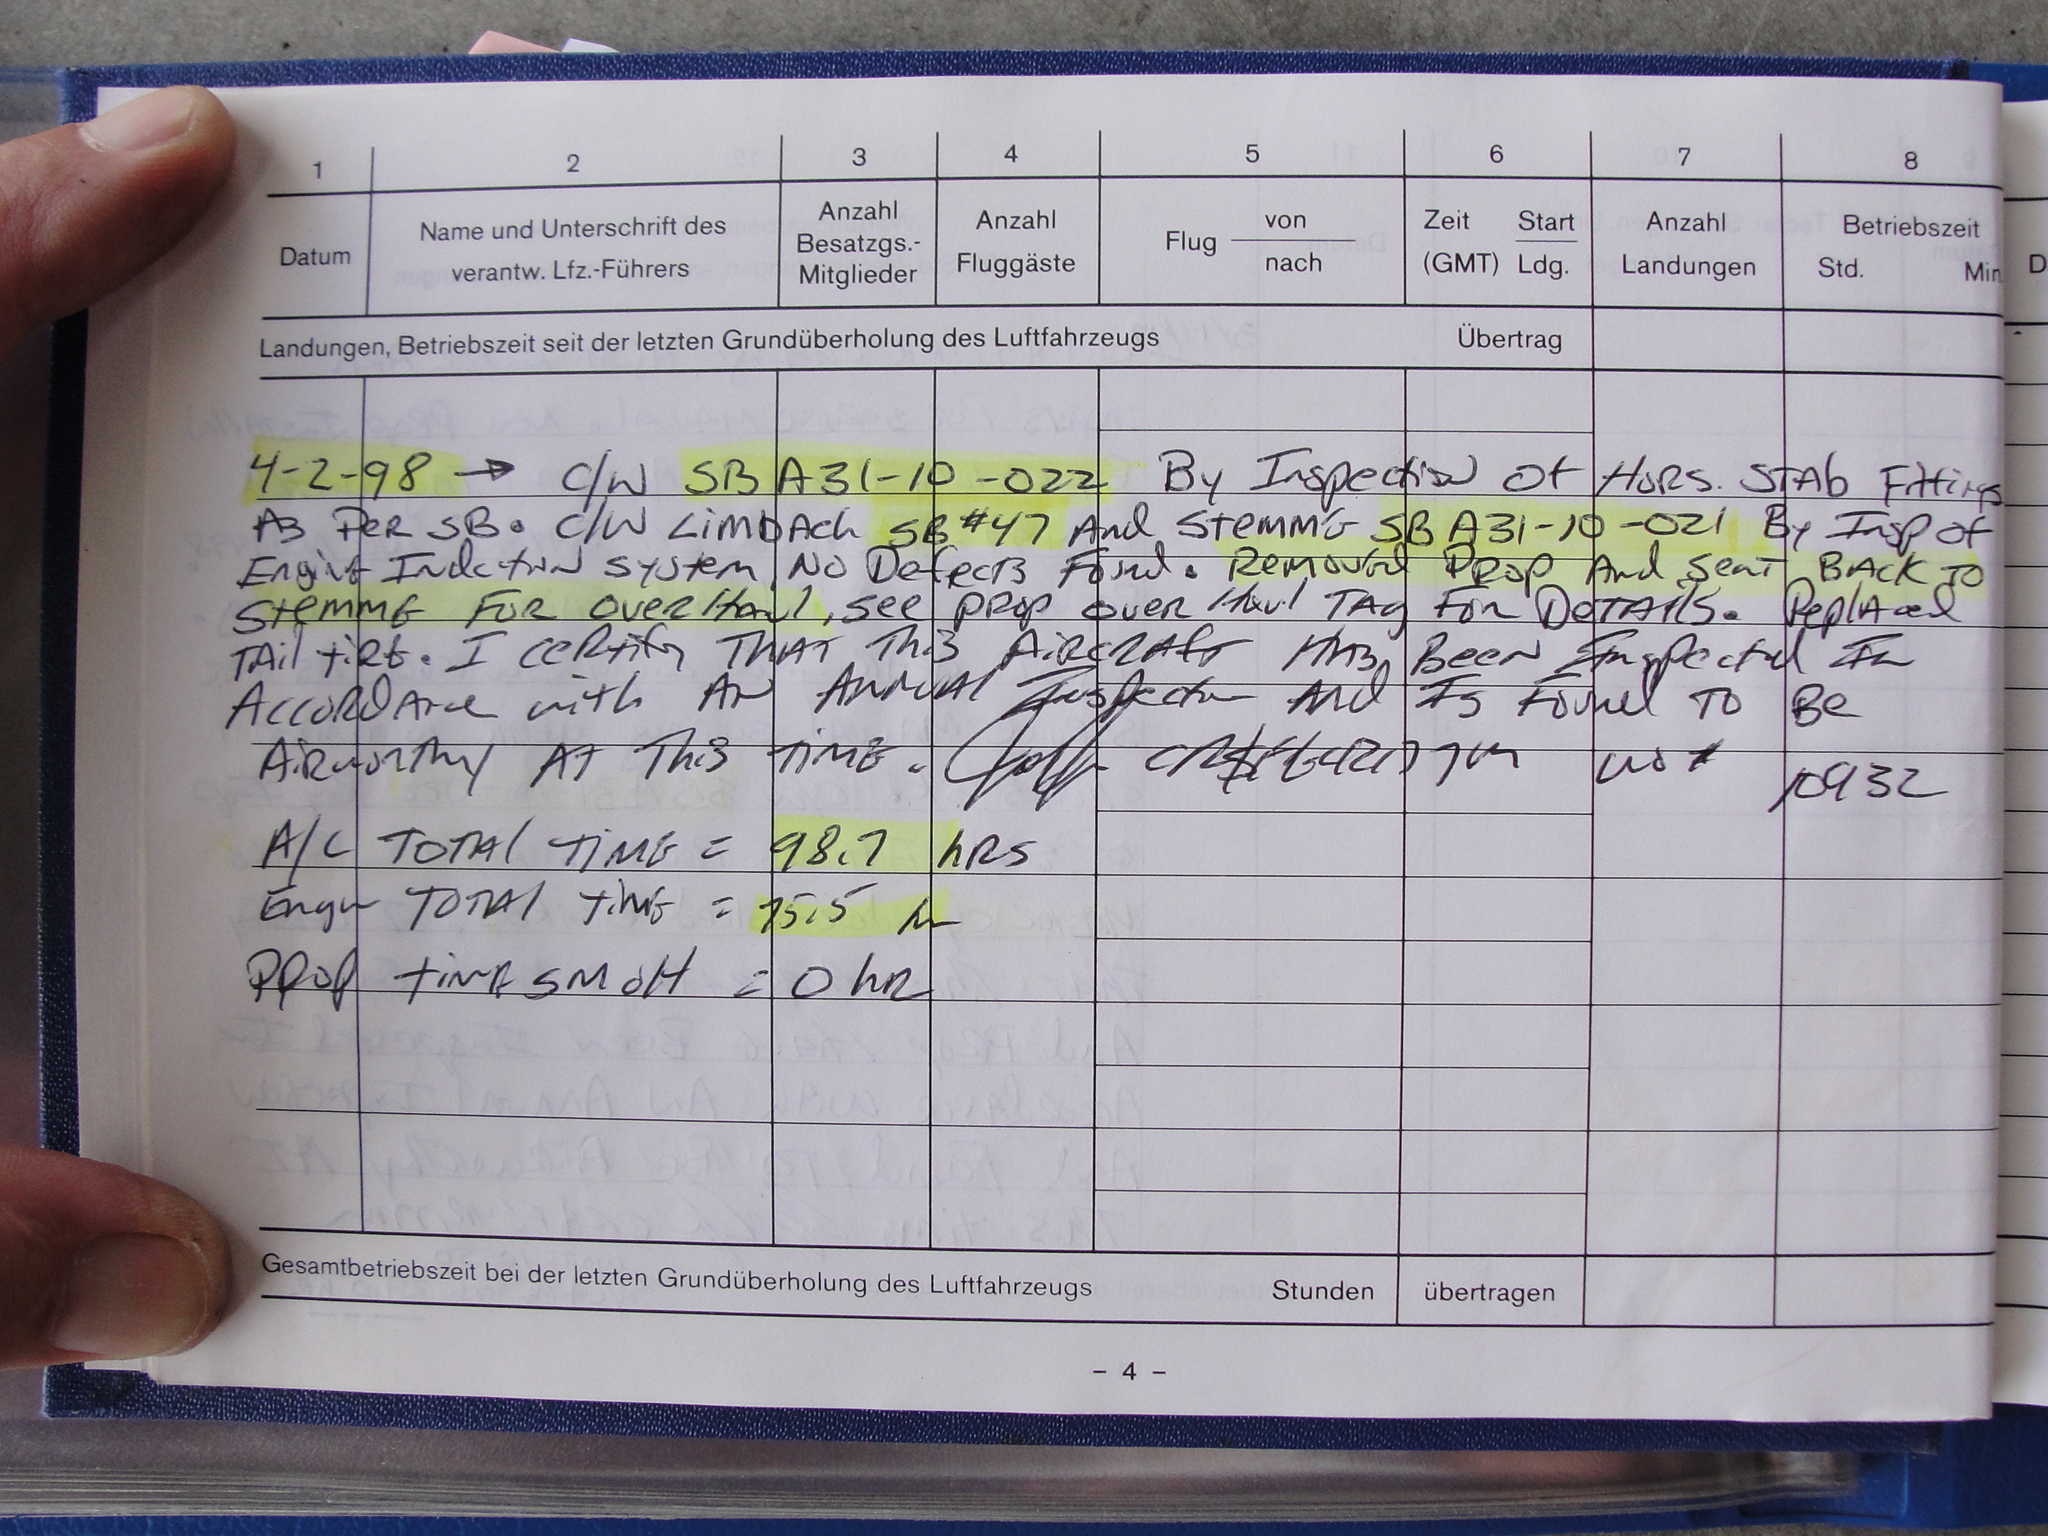 1 2 3 4 5 6 7 8
Datum
Name und Unterschrift des
verantw. Lfz.-Führers
Anzahl
Besatzgs.-
Mitglieder
Anzahl
Fluggäste
Flug von
nach
Zeit Start
(GMT) Ldg.
Anzahl
Landungen
Betriebszeit
Std. Min
D
Landungen, Betriebszeit seit der letzten Grundüberholung des Luftfahrzeugs Übertrag
4-2-98 → C/W SB A31-10-022 By Inspection Of Hors. STAb Fittings
As Per SB. C/W Limbach SB #47 And Stemme SB A31-10-021 By Insp of
Engine Induction System, No Defects Found. Removed Prop And Sent Back To
Stemme For Overhaul, See Prop Overhaul Tag For Details. Replaced
Tail tire. I certify That This Aircraft Has Been Inspected In
Accordance with An Annual Inspection And Is Found To Be
Airworthy At This Time.
10932
A/C Total Time = 98.7 hrs
Engin Total time = 75.5 hr
Prop time SMOH = 0 hr
Gesamtbetriebszeit bei der letzten Grundüberholung des Luftfahrzeugs Stunden übertragen
- 4 -